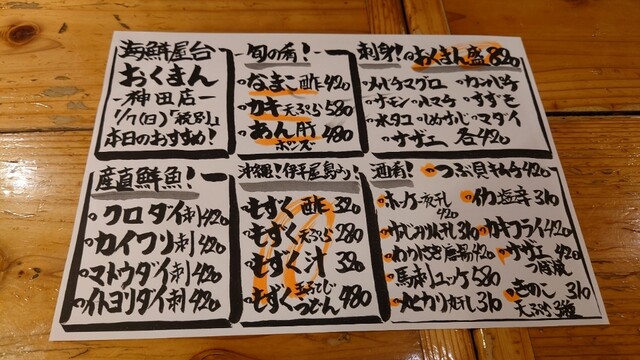 海鮮屋台
おくまん
-神田店-
1/7(日)「税別」
本日のおすすめ!
旬の肴!
なまこ酢420
カキ天ぷら580
あん肝480
ポンズ
刺身!おくまん盛820
メバチマグロ カンパチ
サーモン ハマチ すずき
水タコ 〆めさば マダイ
サザエ 各420
産直鮮魚!
クロダイ刺420
カイワリ刺420
マトウダイ刺420
イトヨリダイ刺420
沖縄!伊平屋島から
もずく酢320
もずく天ぷら280
もずく汁320
もずく玉子とじ
うどん480
酒肴!
つぶ貝キムチ420
ホッケ一夜干
420
イカ塩辛310
カキフライ420
わかさぎ唐揚420
サザエ420
つぼ焼
馬刺ユッケ580
メヒカリ丸干し310
きのこ310
天ぷら3種